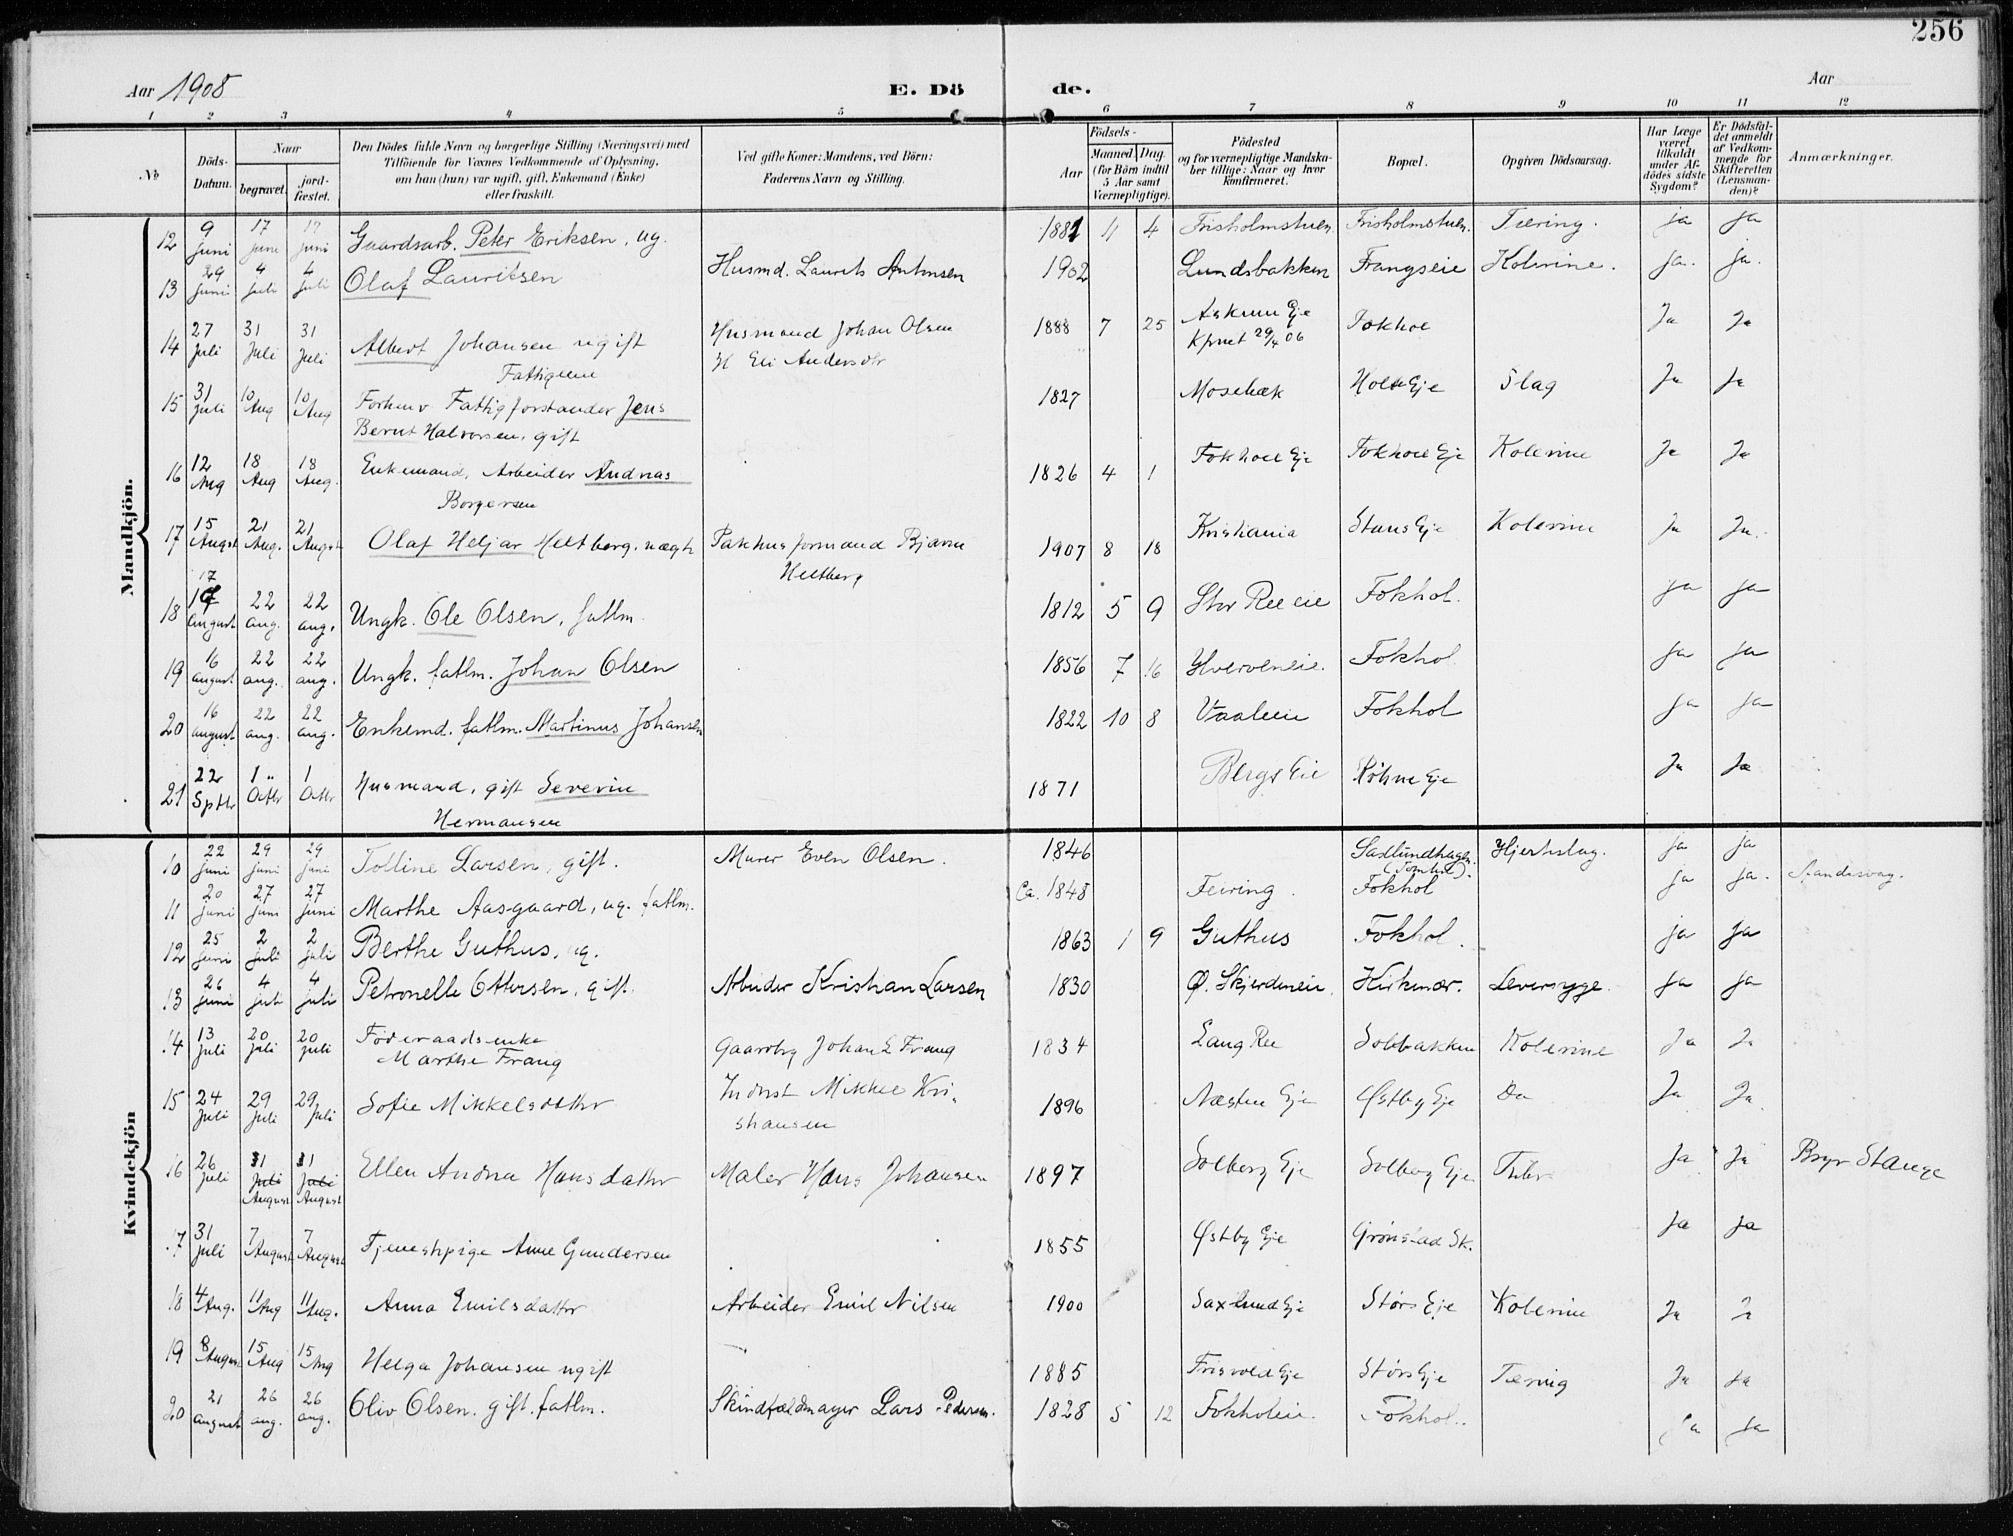 256
Aar 1908
E. Dö de.
Aar
1 2 3 4 5 6 7 8 9 10 11 12
No
Döds-Datum.
Naar
begravet.
jord-fæstet.
Den Dödes fulde Navn og borgerlige Stilling (Næringsvei) med
Tilföiende for Voxnes Vedkommende af Oplysning,
om han (hun) var ugift, gift, Enkemand (Enke)
eller fraskilt.
Ved gifte Koner: Mandens, ved Börn:
Faderens Navn og Stilling.
Födsels-
Aar
Maaned Dag.
(for Börn indtil
5 Aar samt
Værnepligtige).
Födested
og for værnepligtige Mandska-
ber tillige: Naar og hvor
konfirmeret.
Bopæl.
Opgiven Dödsaarsag.
Har Læge
været
tilkaldt
under Af-
dödes sidste
Sygdom?
Er Dödsfal-
det anmeldt
af Vedkom-
mende for
Skifteretten
(Lensman-
den)?
Anmærkninger.
Mandkjön.
12 9 juni 17 juni 17 juni Gaardsarb. Peter Eriksen, ug. 1881 11 4 Frisholmstuen Frisholmstuen. Tæring. ja ja
13 29 juni 4 juli 4 juli Olaf Lauritsen Husmd. Laurits Antonsen 1902 Lundsbakken Frangseie Kolerine. ja. ja.
14 27 Juli 31 Juli 31 Juli Albert Johansen ugift Husmand Johan Olsen 1888 7 25 Askum Eje Fokhol Ja Ja
H Eli Andersdtr Kfmet 29/4 06
Fattiglem
15 31 Juli 10 Aug 10 Aug Forhenv Fattigforstander Jens 1827 Mosebæk Holte Eje Slag Ja Ja
Bernt Halvorsen, gift
16 12 Aug 18 Aug 18 Aug. Enkemand, Arbeider Andreas 1826 4 1 Fokhol Eje Fokhol Eje Kolerine Ja Ja
Borgersen
17 15 Augst 21 Aug. 21 Augst Olaf Heljar Heltberg, uægte Pakhusformand Bjarne 1907 8 18 Kristiania Stans Eje Kolerine Ja Ja.
Heltberg
18 17 august 22 aug. 22 aug. Ungk. Ole Olsen, fatlm. 1812 5 9 Stor Ree eie Fokhol. ja ja
19 16 august 22 aug. 22 aug. Ungk. fatlm. Johan Olsen 1856 7 16 Hverveneie. Fokhol ja ja
20 16 august 22 aug. 22 aug. Enkemd. fatlm. Martinus Johansen 1822 10 8 Vaaleie Fokhol ja ja
21 22 Sptbr 1 Octbr 1 Octbr Husmand, gift Severin 1871 Bergs Eie Ja Ja
Hermansen
Kvindekjön
10 22 juni 29 juni 29 juni Tolline Larsen, gift. Murer Even Olsen. 1846 Saxlundhagen (Tomten). Hjerteslag. ja ja
11 20 juni 27 juni 27 juni Marthe Aasgaard, ug. fatlm. Ca. 1848 Feiring. Fokhol ja ja. Sandssvag.
12 25 juni 2 juli 2 juli Berthe Guthus, ug. 1863 1 9 Guthus Fokhol. ja ja
13 26 juni 4 juli 4 juli Petronelle Ottersen, gift. Arbeider Kristian Larsen 1830 Ø. Skjerdeneie. Kirkenær. Leversyge. ja ja
14 13 Juli 20 Juli 20 juli Føderaadsenke Gaardbr Johan E Frang 1834 Lang Ree Solbakken Kolerine Ja Ja
Marthe Frang
15 24 Juli 29 Juli 29 Juli Sofie Mikkelsdatter Inderst Mikkel Kri- 1896 Næsten Eje Østby Eje Do Ja Ja
stiansen
16 26 Juli 31 Juli August 31 Juli August Ellen Andrea Hansdatter Maler Hans Johansen 1897 Solberg Eje Solberg Eje Tub. Ja Ja Stange
17 31 Juli 7 August 7 August Tjenestpige Anne Gundersen 1855 Østby Eje Grønstad Sk. Ja Ja
18 4 Aug. 11 Aug 11 Aug. Anna Emilsdatter Arbeider Emil Nilsen 1900 Saxlund Eje Størs Eje Kolerine Ja J
19 8 August 15 Aug 15 Aug Helga Johansen ugift 1885 Frisvold Eje Størs Eje Tæring Ja Ja
20 21 august 26 aug. 26 aug. Oliv Olsen. gift. fatlm. Skindfældmager Lars Pedersen. 1828 5 12 Fokholeie. Fokhol.. ja ja